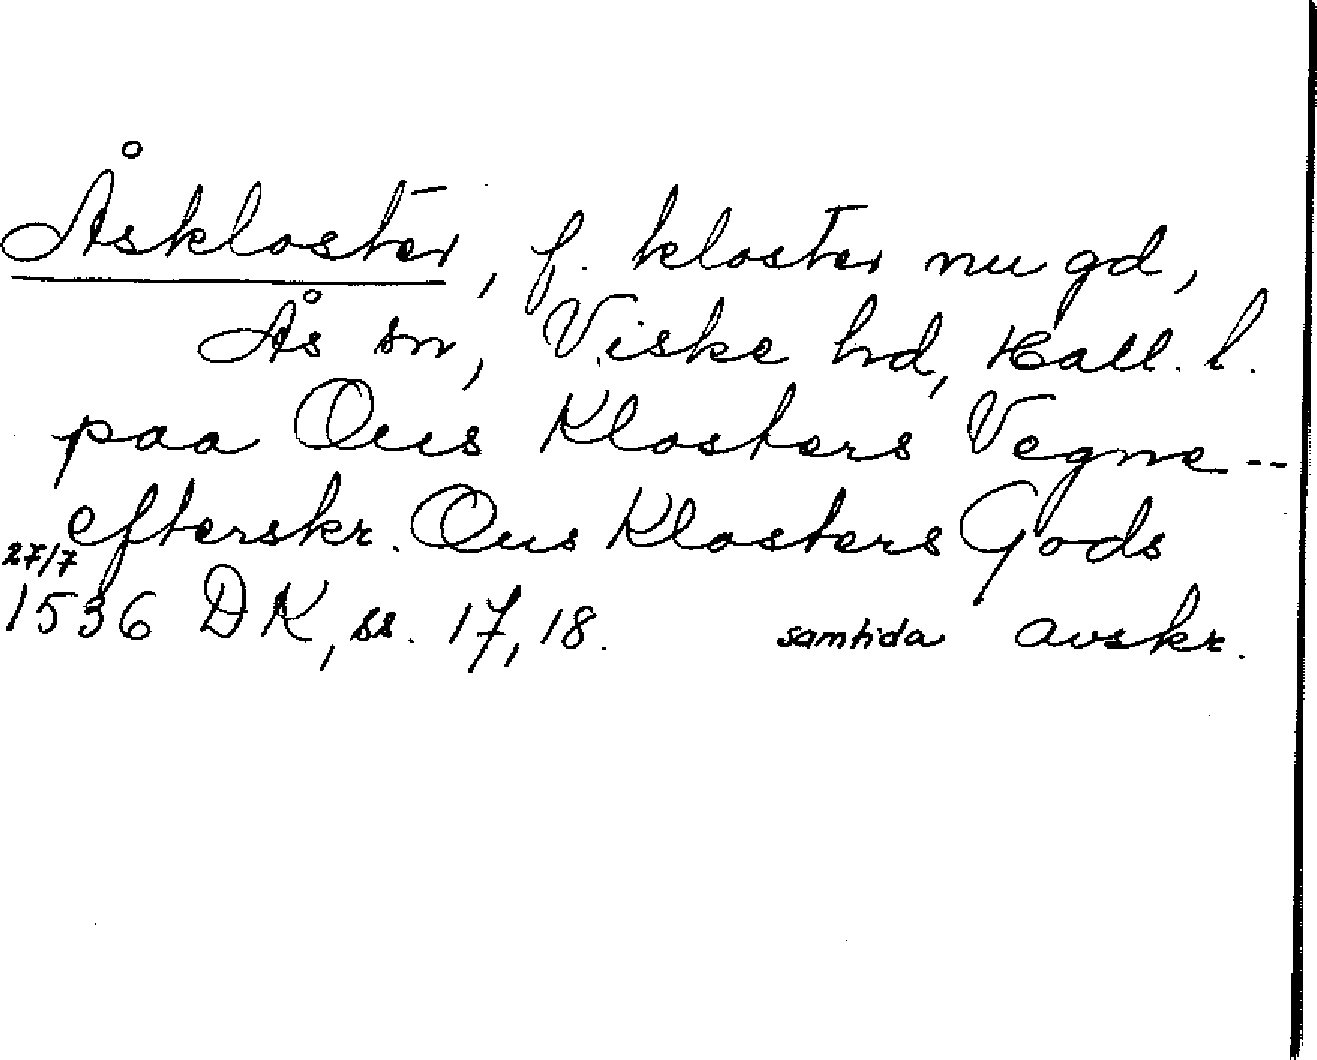 Åskloster, f. kloster nu gd,
Ås sn, Viske hd, Hall. l.
paa Ous Klosters Vegne --
efterskr. Ous Klosters Gods
27/7
1536 DK, ss. 17, 18. samtida avskr.